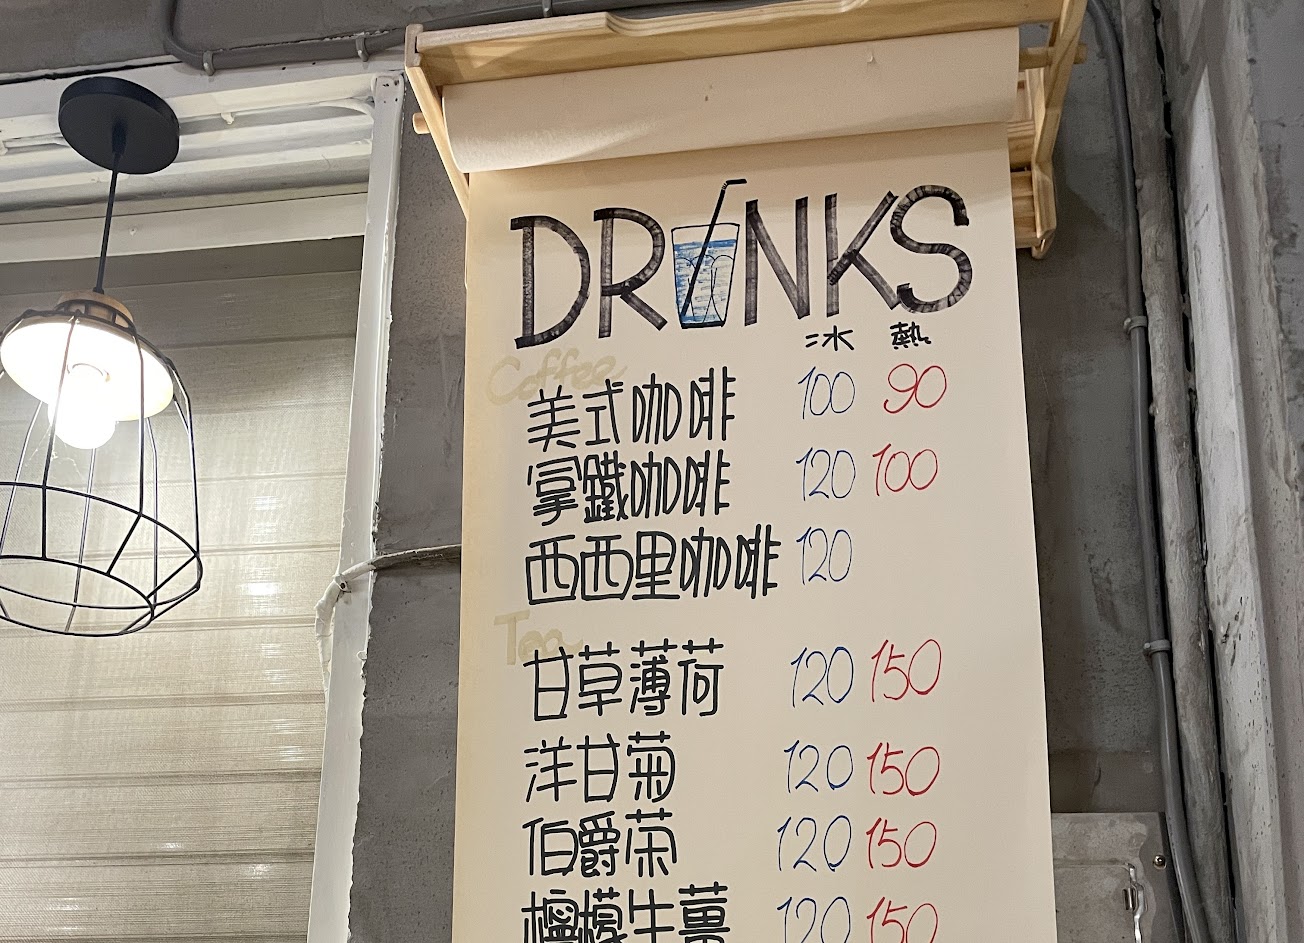 DRINKS
冰 熱
Coffee
美式咖啡 100 90
拿鐵咖啡 120 100
西西里咖啡 120
Tea
甘草薄荷 120 150
洋甘菊 120 150
伯爵茶 120 150
檸檬生薑 120 150